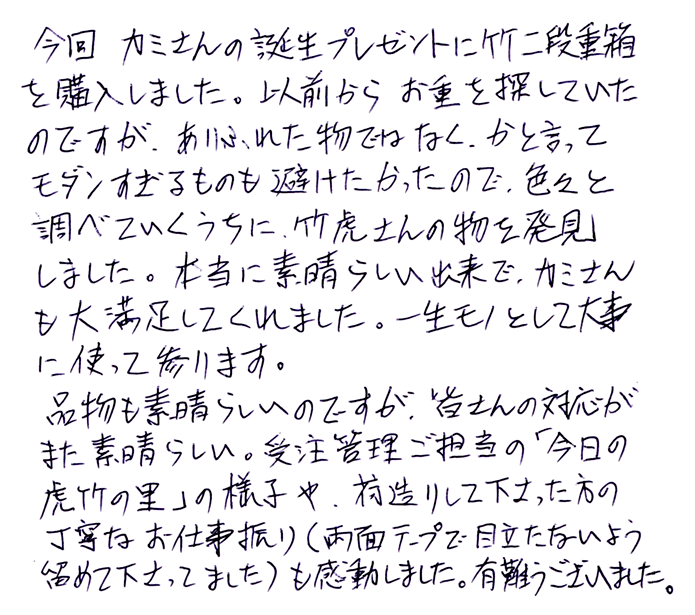 今回 カミさんの誕生プレゼントに竹二段重箱
を購入しました。以前から お重を探していた
のですが、ありふれた物ではなく、かと言って
モダンすぎるものも避けたかったので、色々と
調べていくうちに、竹虎さんの物を発見
しました。本当に素晴らしい出来で、カミさん
も大満足してくれました。一生モノとして大事
に使って参ります。
品物も素晴らしいのですが、皆さんの対応が
また素晴らしい。受注管理ご担当の「今日の
虎竹の里」の様子や、荷造りして下さった方の
丁寧なお仕事振り(両面テープで目立たないよう
留めて下さってました)も感動しました。有難うございました。